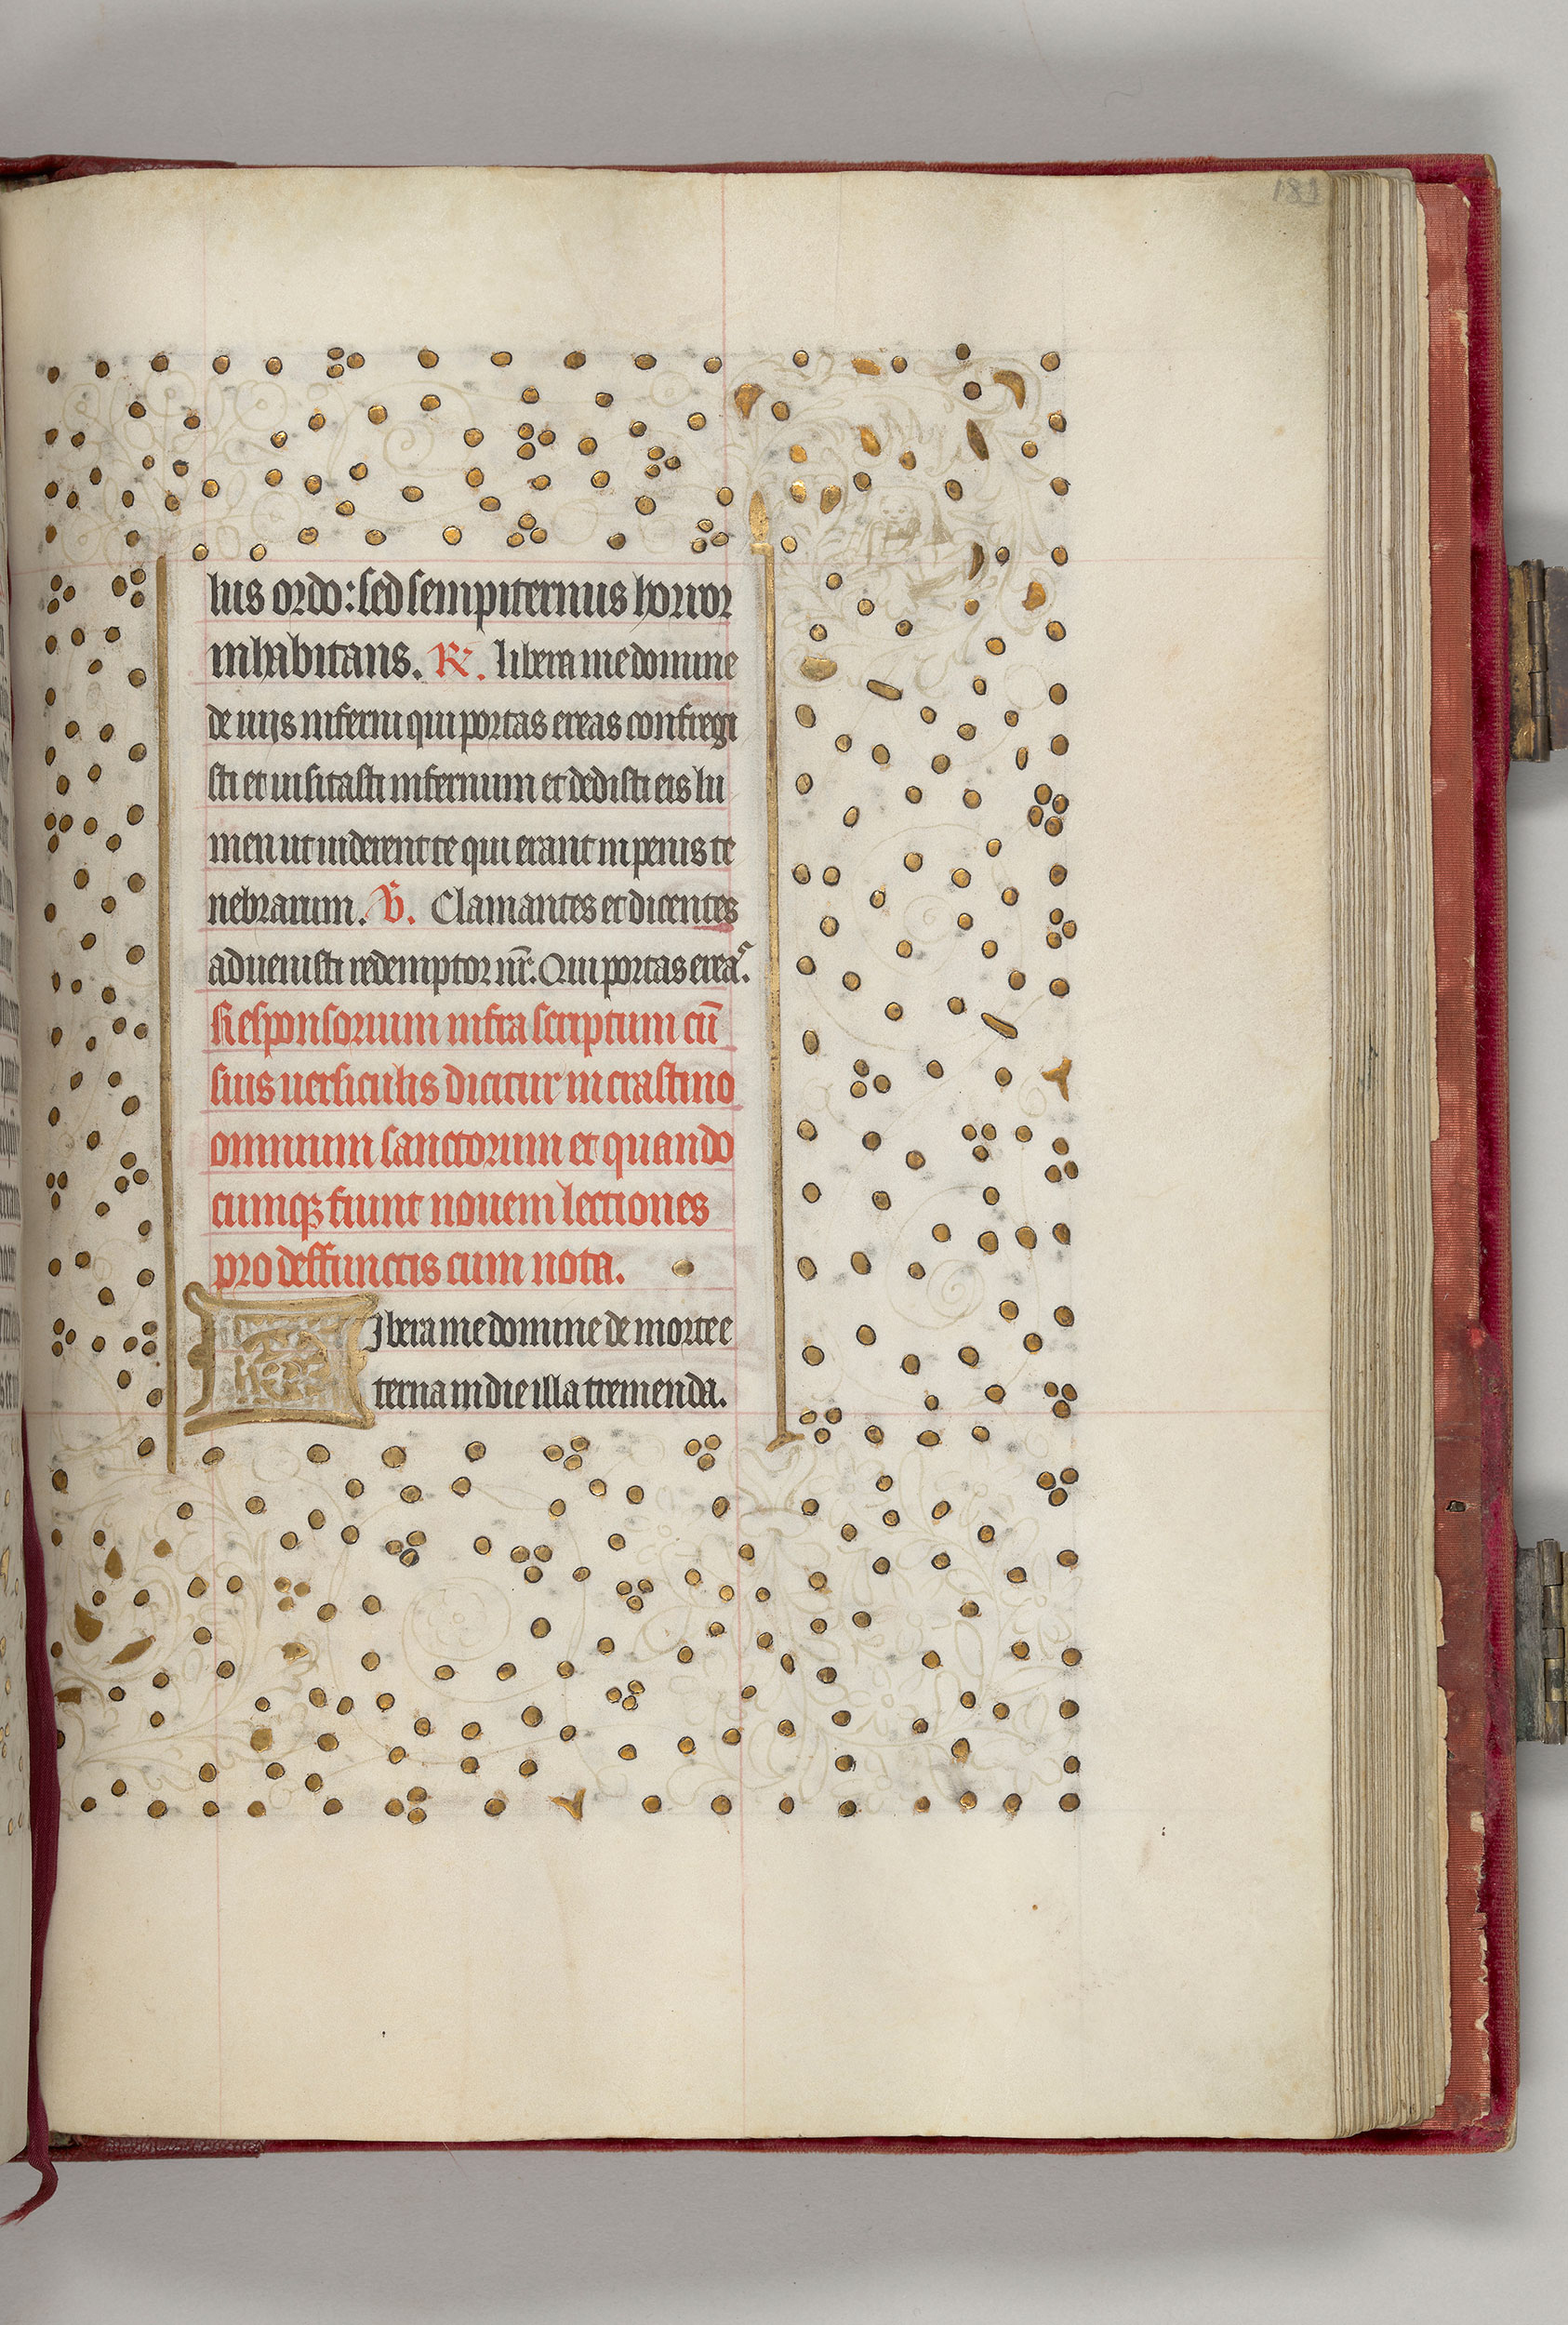 181
lus ordo: sed sempiternus horror
inhabitans. R. libera me domine
de uiis inferni qui portas ereas confregi
sti et uisitasti infernum et dedisti eis lu
men ut uiderent te qui erant in penis te
nebrarum. V. Clamantes et dicentes
aduenisti redemptor nr̄. Qui portas erea.
Responsorium infra scriptum cū
suis uersiculis dicitur in crastino
omnium sanctorum et quando
cumqꝫ fiunt nouem lectiones
pro deffunctis cum nota.
Libera me domine de morte e
terna in die illa tremenda.